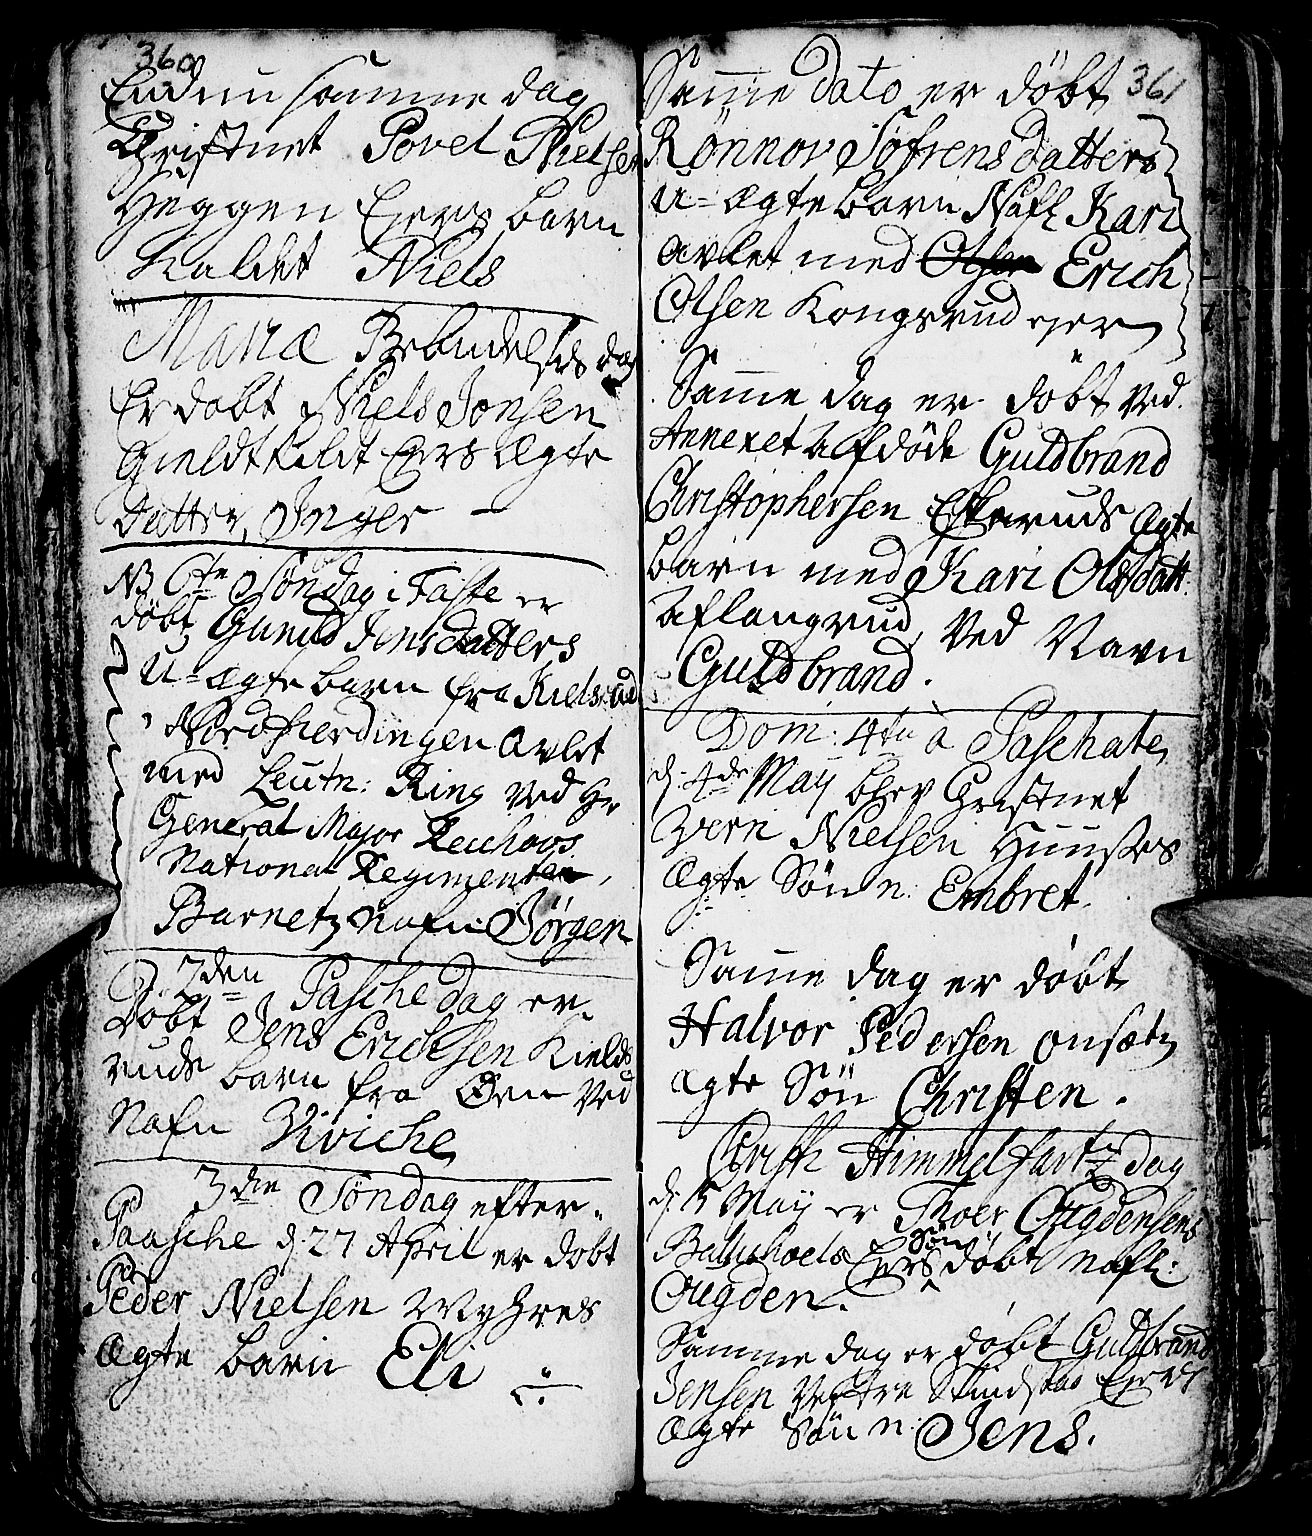 360
Endnu samme dag
Christnet Povel Nielsen
Heggen Ejers barn
Kaldet Niels
Mariæ Bebudelses dag
Er døbt Niels Jonsen
Ejers Ægte
Datter, Inger
NB 6te Søndag i Faste er
døbt Gunild Jensdatters
U-ægte barn fra Kielsrud
Nordfierdingen avlet
med Leutn: Ring ved Hr
General Major Reichovs
National Regimente,
Barnetz Nafn: Jørgen
D. 2den Pasche dag er
Døbt Jens Ericksen Kields
ruds barn fra Øen ved
Nafn Viviche
3die Søndag efter
Paasche d: 27 April er døbt
Peder Nielsen Myhres
Ægte barn Eli
361
Samme dato er døbt
Rønnov Søfrensdatters
U-ægte barn Nafl Kari
avlet med Olsen Erich
Olsen Kongsrud ejer
Samme dag er døbt ved
Annexet afdøde Guldbrand
Christophersen Eskeruds ægte
barn med Kari Olsdatt:
aflangrud, ved Navn
Guldbrand.
Dom: 4ta à Paschate
d: 4de Maij blev Christnet
Ivern Nielsen Huuses
Ægte Søn n: Embret.
Samme dag er døbt
Halvor Pedersen Onsætz
ægte Søn Christen.
Christi Himmelfartz dag
d: Maij er Thoer Ougdensens
Ejers Søn døbt Nafl:
Ougden.
Samme dag er døbt Guldbrand
Jensen Vestre Skindstad Ejers
Ægte Søn n: Jens.